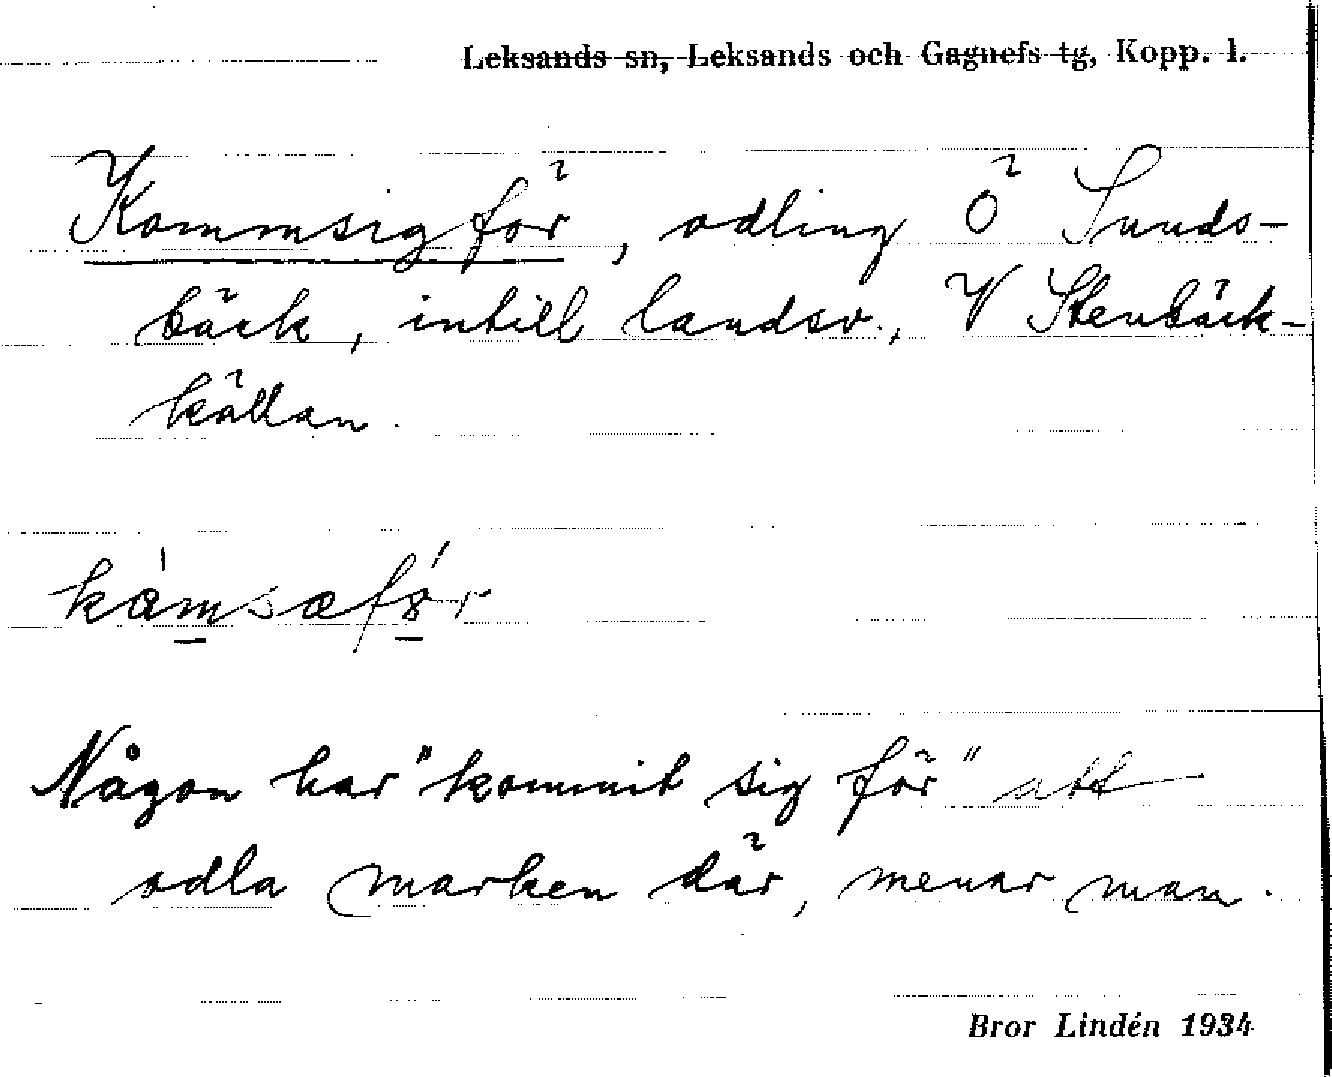 Leksands sn, Leksands och Gagnefs tg, Kopp. l.
Kommsigför, odling Ö Sunds-
bäck, intill landsv., V Stenbäck-
källan.
kámsæfó̤r
Någon har "kommit sig för" att
odla marken där, menar man.
Bror Lindén 1934